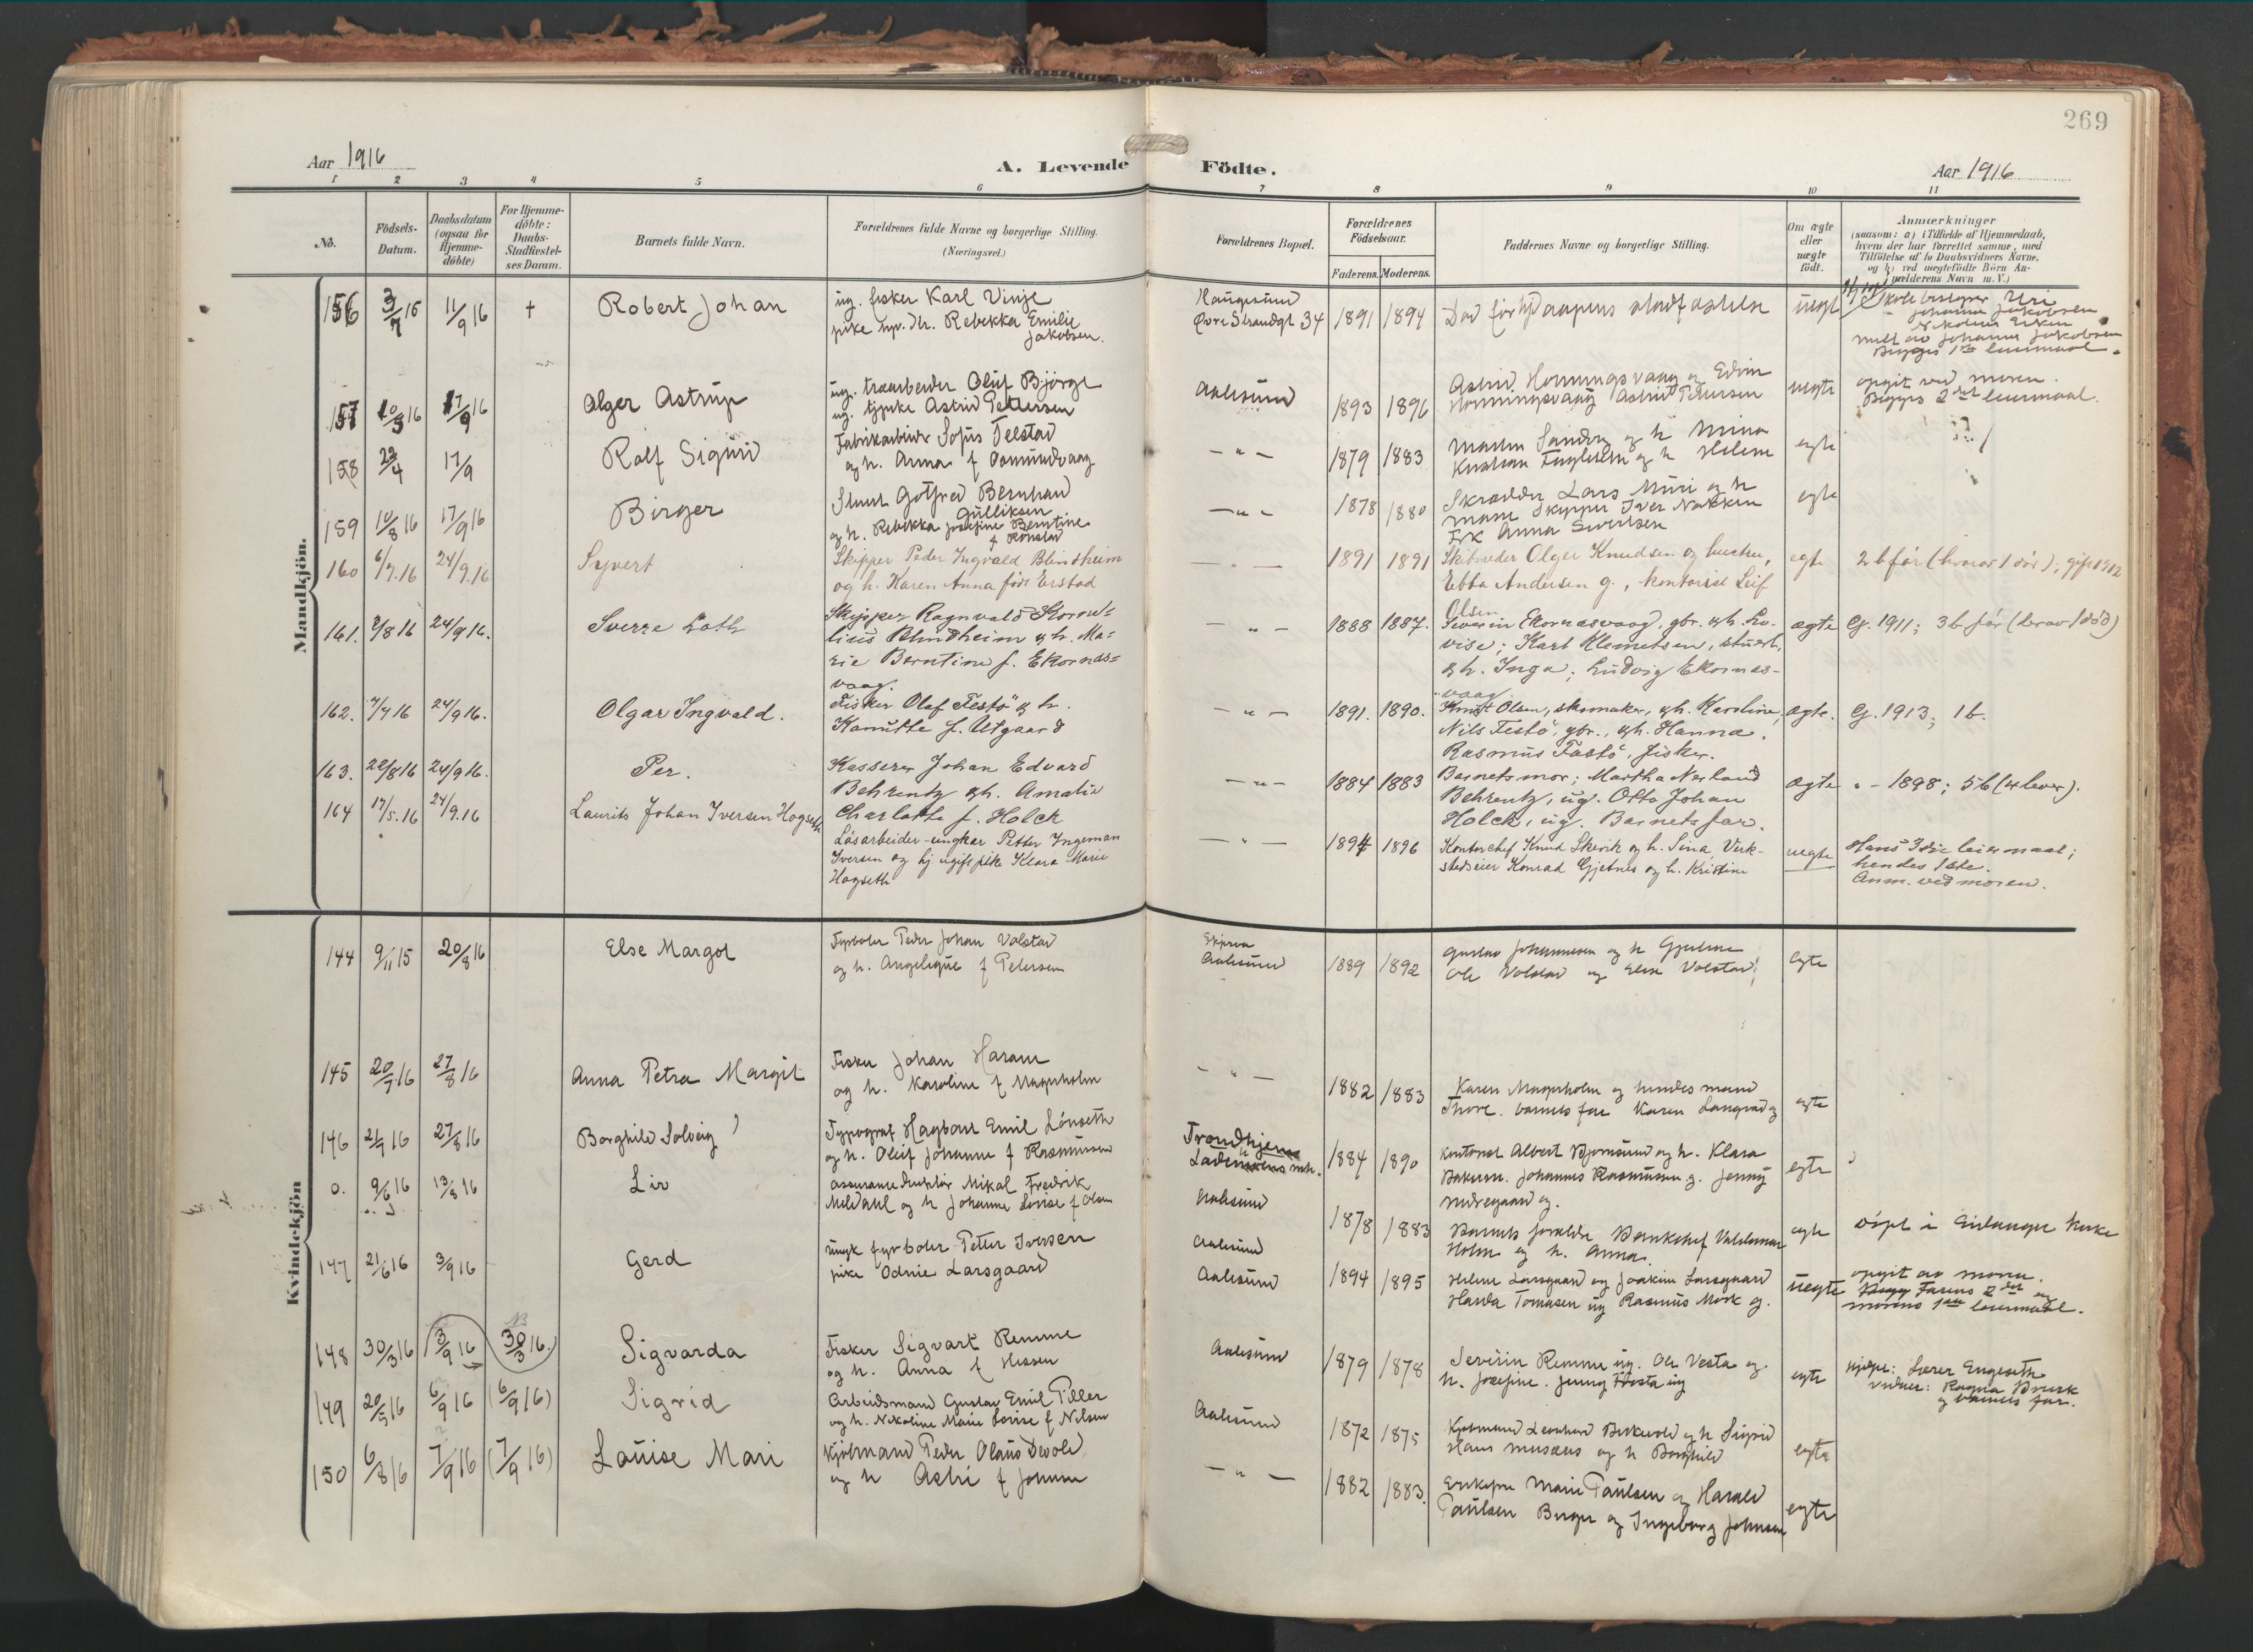 269
Aar 1916
A. Levende Födte.
Aar 1916
1 2 3 4 5 6 7 8 9 10 11
No.
Födsels-
Datum.
Daabsdatum
(ogsaa for
Hjemme-
döbte)
For Hjemme-
döbte:
Daabs-
Stadfæstel-
ses Datum.
Barnets fulde Navn.
Forældrenes fulde Navne og borgerlige Stilling.
(Næringsvei.)
Forældrenes Bopæl.
Forældrenes
Födselsaar.
Faderens. Moderens.
Faddernes Navne og borgerlige Stilling.
Om ægte
eller
uægte
födt.
Anmærkninger
(saasom: a) i Tilfælde af Hjemmedaab,
hvem der har forrettet samme, med
Tilföielse af to Daabsvidners Navne,
og b) ved uægtefödte Börn An-
forælderens Navn m. V.)
Mandkjön.
156 3/7 15 11/9 16 † Robert Johan
ug. fisker Karl Vinje
pike Rebekka Emilie
Jakobsen.
Haugesund
Övre Strandgt 34
1891 1894
uegt
Johanna Jakobsen
Johanna Jakobsen
1ste leiermaal.
157 10/5 16 17/9 16 Olger Astrup
ug. Oluf Björge
ug. Astrid Pettersen
Aalesund
1893 1896
Astrid Hornningsvaag og Edvin
Hornningsvaag Astrid Petersen
uegte
opgit ved moren.
2det leiermaal.
158 22/4 17/9 Rolf Sigurd
og h. Anna f
— " —
1879 1883
og h Mina
og h Helene
egte
159 10/8 16 17/9 16 Birger
Gotfred Bernhard
Gulliksen
og h. Rebekka Josefine Berntine
— " —
1878 1880
Skrædder Lars Muri og h
Skipper Iver Nakken
Frk Anna Sivertsen
egte
160 6/7.16 24/9.16 Syvert
Skipper Peder Ingvald Blindheim
og h. Karen Anna föd Erstad
— " —
1891 1891
Skibsreder Olger Knudsen og hustru,
Ebba Andersen g., kontorist Leif
Olsen
egte
2 b för (hvorav 1 död); gift 1912
161. 2/8 16 24/9 16. Sverre Loth
Skipper Ragnvald Korne-
lius Blindheim & h. Ma-
rie Berntine f. Ekornæs-
vaag.
— " —
1888 1887.
Severin Ekornæsvaag, gbr. & h. Lo-
vise; Karl Klemetsen, stuert,
& h. Inga; Ludvig Ekornes-
vaag.
ægte
G. 1911; 3 b för (derav 1 död)
162. 7/7 16 24/9 16. Olgar Ingvald.
Fisker Olaf Festö & h.
Kanutte f. Utgaard
— " —
1891. 1890.
Knut Olsen, skomaker, & h. Karoline,
Nils Festö, gbr., & h. Hanna,
Rasmus Fastö, fisker.
ægte.
G. 1913; 1 b.
163. 22/8 16 24/9 16. Per.
Kasserer Johan Edvard
Behrentz & h. Amalie
Charlotte f. Holck
— " —
1884 1883
Barnets mor; Martha Nerland
Behrentz, ug. Otto Johan
Holck, ug. Barnets far.
ægte
" - 1898; 5 b (4 lever).
164 17/5.16 24/9.16 Laurits Johan Iversen Hogseth
Lösarbeider - ungkar Petter Ingeman
Iversen og hj ugift pike Klara Marie
Hogseth
— " —
1894 1896
Kontorchef Knud Skorik og h. Sina, Verk-
stedseier Konrad Gjetnes og h. Kristine
uegte
Hans 3die leiermaal;
hendes 1ste.
Anm. ved moren.
Kvindekjön
144 9/11 15 20/8 16 Else Margot
Fyrböter Peder Johan Volstad
og h. Angelique f Petersen
Aalesund
1889 1892
Gustav Johannesen og h
Ole Volstad og Else Volstad
egte
145 20/7 16 27/8 16 Anna Petra Margit
Fisker Johan Haram
og h. Karoline f Magerholm
— " —
1882 1883
Karen Magerholm og hendes mand
Thore. barnets far Karen Langvad g
egte
146 27/8 16 Borghild Solveig
Typograf Hagbart Emil Lönseth
og h. Oluf Johanne f Rasmussen
Trondhjem
1884 1890
kontorist Albert Bjornsund og h. Klara
Johannes Rasmussen g. Jenny
egte
0. 9/6 16 13/8 16 Liv
Mikal Fredrik
Meldahl og h Johanne Lovise f Olsen
Aalesund
1878 1883
Barnets foreldre Bankchef Valdemar
Holm og h. Anna.
egte
döpt i kirke
147 21/6 16 3/9 16 Gerd
ungk fyrböter Petter Iversen
pike Odnie Larsgaard
Aalesund
Aalesund
1894 1895
Helene Larsgaard og Joakim Larsgaard
Harda Tomasen ug Rasmus Mork g.
uegte
opgit av moren.
Farens 2det og
morens 1ste leiermaal.
148 30/3 16 3/9 16 30/3 16. Sigvarda
Fisker Sigvart Remme
og h. Anna f Hessen
Aalesund
1879 1878
Severin Remme ug. Ole Vesta g.
h. Josefine. Jenny Vesta ug
egte
hjdöpt: Lærer Engeseth
vidner: Ragna
og barnets far.
149 20/5 16 6/9 16 (6/9 16) Sigrid
Arbeidsmand Gustav Emil Piller
og h. Nikoline Marie Lovise f Nilsen
Aalesund
1872 1875
Kjöbmand Leonhard og h Sigrid
Hans Musæus og h Borghild
egte
150 6/8 16 7/9 16 (7/9 16) Louise Mari
Kjöbmand Peder Olaus Devold
og h Astri f Johnsen
— " —
1882 1883.
Marie Paulsen og Harald
Paulsen Birger og Ingeborg Johnsen
egte